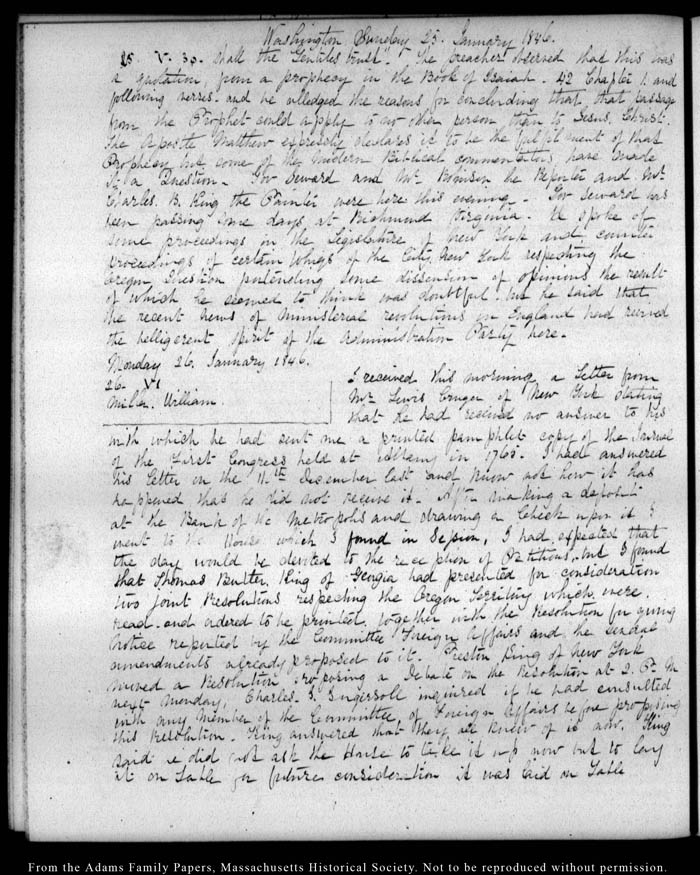 Washington Sunday 25. January 1846.
25. V. 30. shall the Gentiles trust". The preacher observed that this was
a quotation from a prophecy in the Book of Isaiah. 42 Chapter 1. and
following verses. and he alledged the reasons for concluding that that passage
from the Prophet could apply to no other person than to Jesus Christ.
The Apostle Matthew expressly declares it to be the fulfilment of that
Prophecy but some of the modern Biblical commentators have made
it a Question. Govr Seward and Mr the Reporter and Mr
Charles. B. King the Painter were here this evening. Govr Seward has
been passing some days at Richmond Virginia. He spoke of
some proceedings in the Legislature of New York and counter
proceedings of certain Whigs of the City, New York respecting the
Oregon Question portending some dissension of opinions the result
of which he seemed to think was doubtful. but he said that
the recent news of ministerial revolutions in England had revived
the belligerent spirit of the Administration Party here.
Monday 26. January 1846.
26. VI
Miller. William.
I received this morning a Letter from
Mr Lewis Cruger of New York stating
that he had received no answer to his
with which he had sent me a printed pamphlet copy of the Journal
of the First Congress held at Albany in 1765. I had answered
his Letter on the 11th December last and know not how it has
happened that he did not receive it. After making a deposit
at the Bank of the Metropolis and drawing a Check upon it I
went to the House which I found in Session, I had expected that
the day would be devoted to the reception of Petitions, but I found
that Thomas Butler King of Georgia had presented for consideration
two joint Resolutions respecting the Oregon Territory which were
read. and ordered to be printed, together with the Resolution for giving
notice reported by the Committee Foreign Affairs and the several
amendments already proposed to it. Preston King of New York
moved a Resolution proposing a Debate on the Resolution at 2. P. M
next Monday, Charles. J. Ingersoll inquired if he had consulted
with any member of the Committee, of Foreign Affairs before proposing
this Resolution. King answered that they all knew of it now. King
said he did not ask the House to take it up now but to lay
it on Table for future consideration it was laid on Table
From the Adams Family Papers, Massachusetts Historical Society. Not to be reproduced without permission.